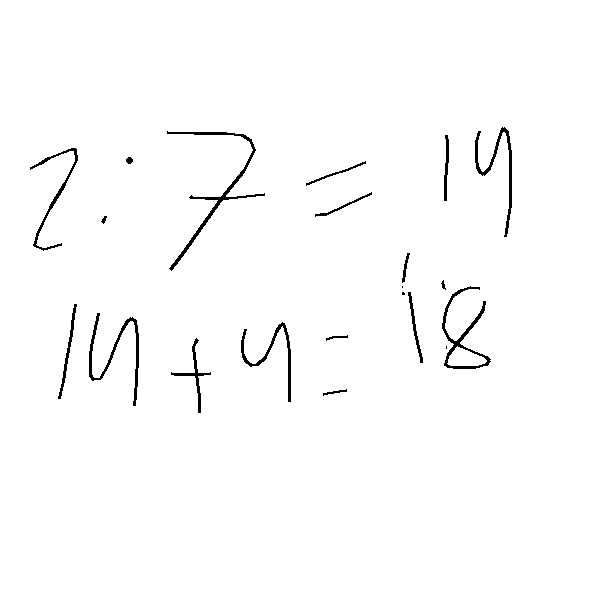 2:7=14
14+4=18